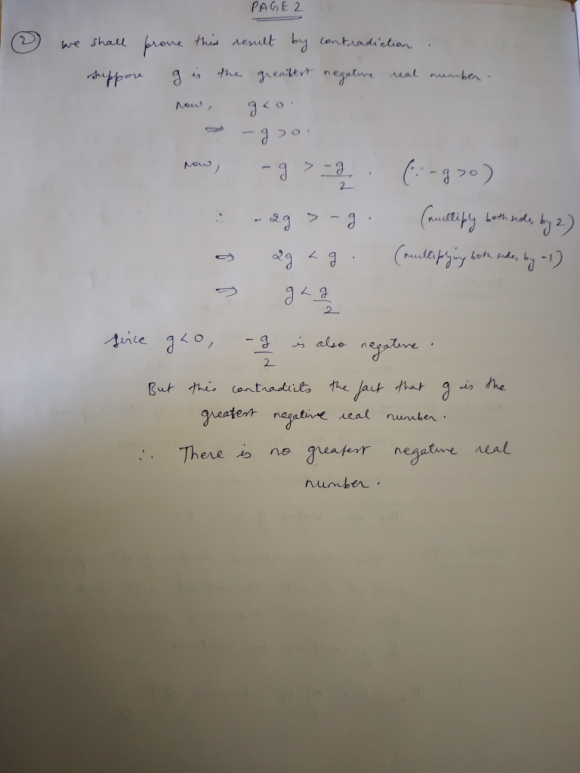 PAGE 2
② we shall prove this result by contradiction.
suppose g is the greatest negative real number.
now, g<0.
⇒ -g>0.
now, -g > -g/2. (∵ -g>0)
∴ -2g > -g. (multiply both sides by 2)
⇒ 2g < g. (multiplying both sides by -1)
⇒ g < g/2
since g<0, -g/2 is also negative.
But this contradicts the fact that g is the
greatest negative real number.
∴ There is no greatest negative real
number.